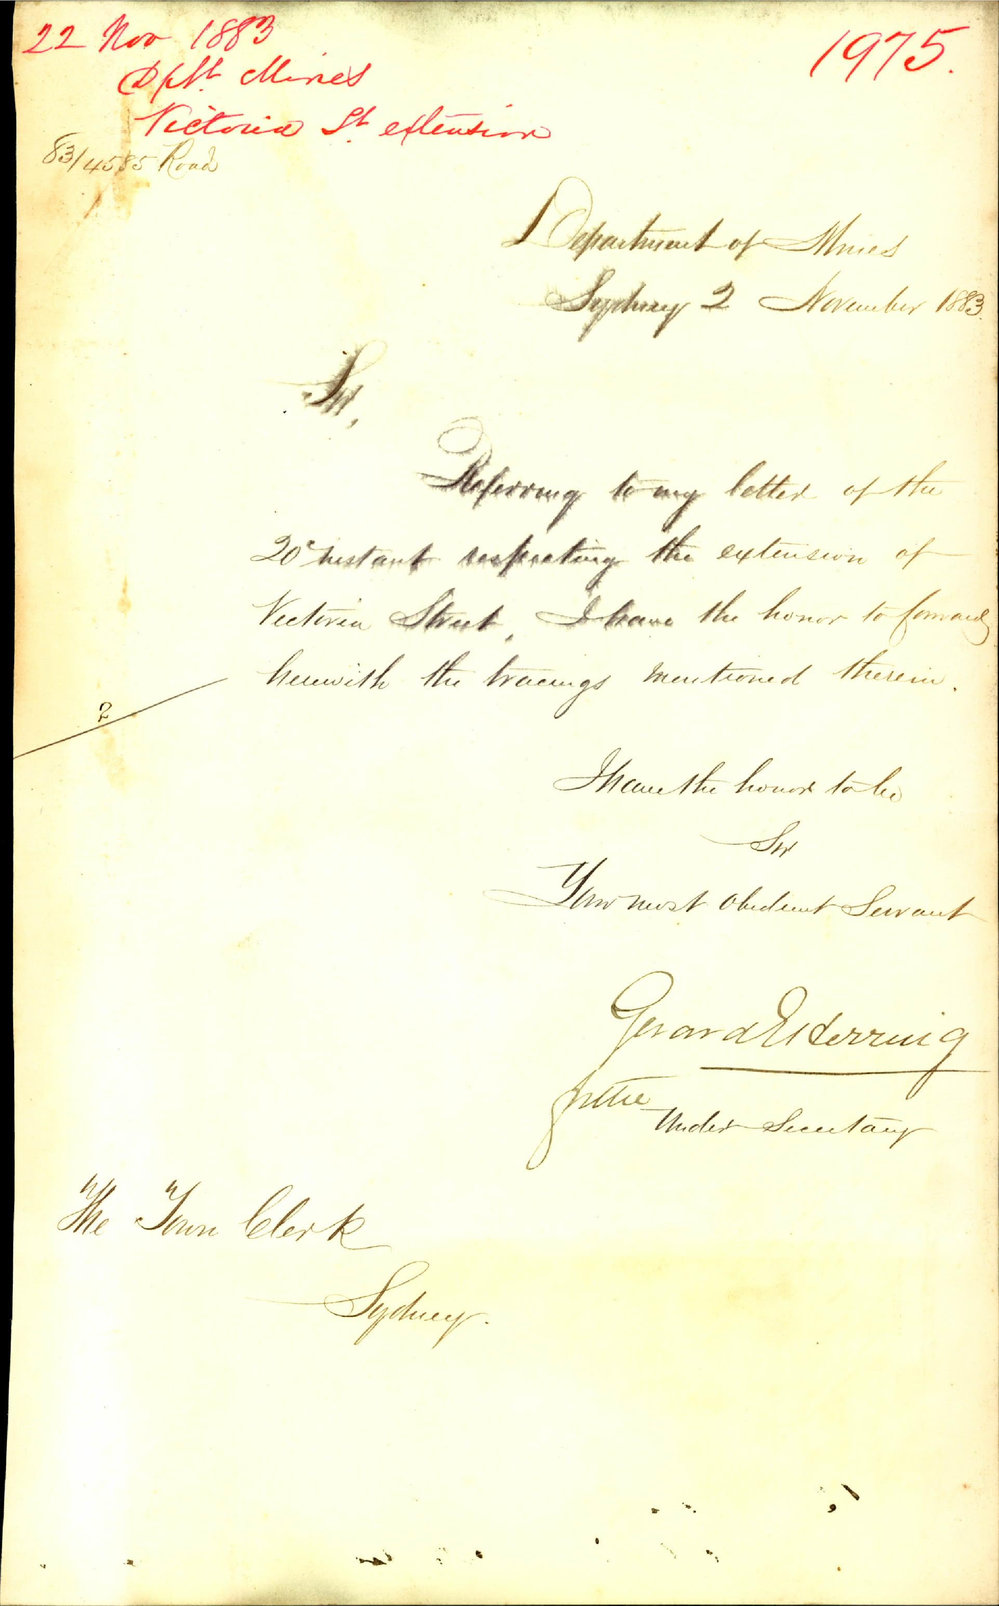 22 Nov 1883
Dpt. Mines
Victoria St. extension
1975.
83/4585 Road
Department of Mines
Sydney 2 November 1883.
Sir,
Referring to my letter of the
20th instant respecting the extension of
Victoria Street, I have the honor to forward
herewith the tracings mentioned therein.
2
I have the honor to be
Sir
Your most obedient Servant
Gerard E Herring
for the
Under Secretary
The Town Clerk
Sydney.